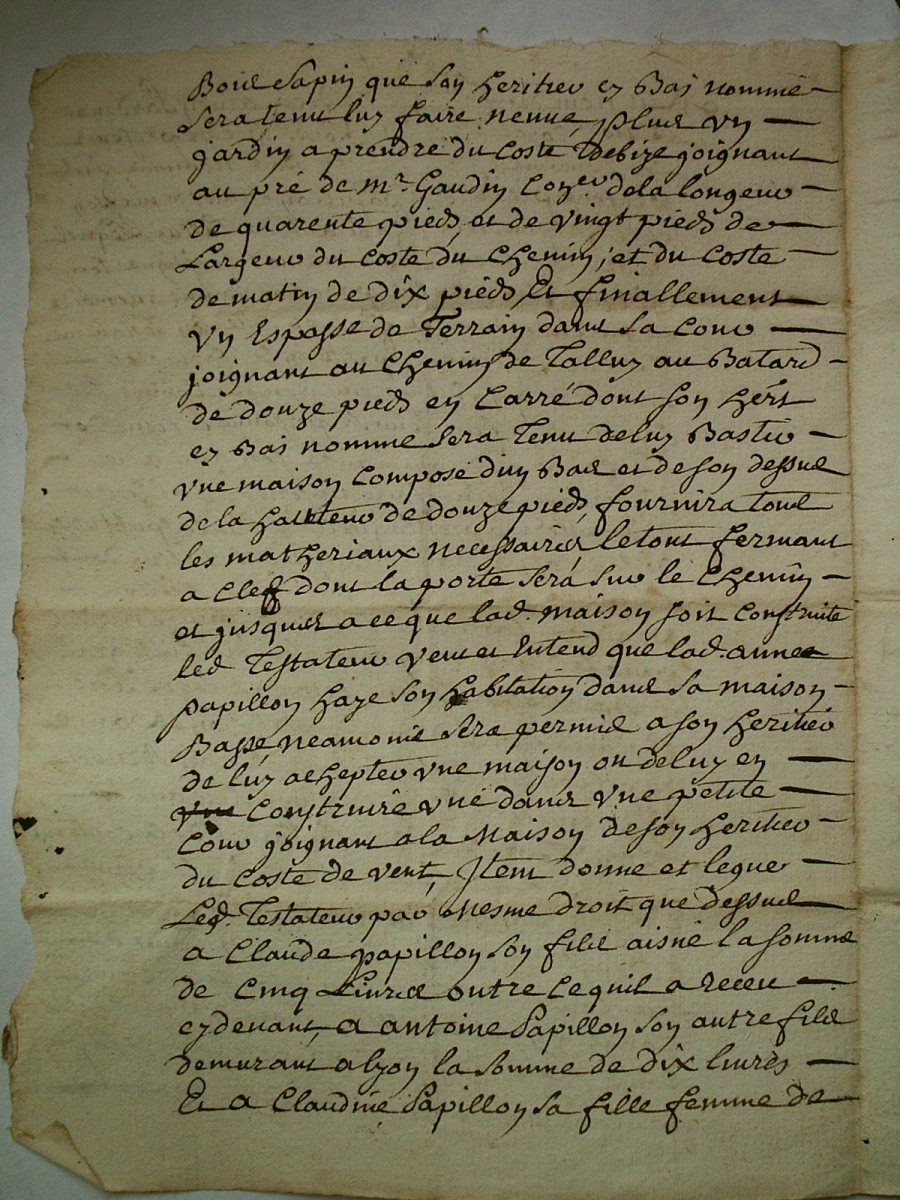 Bois sapin que son heritier cy Bas nommé
Sera tenu luy faire neuve, plus vn
jardin a prendre du costé debize joignant
au pré de mr. Gaudin Coner. dela longeur
de quarente pieds, et de vingt pieds de
Largeur du costé du chemin, et du costé
de matin de dix pieds, Et finallement
Vn Espasse de Terrain dans sa cour
joignant au chemin de Talluy au Batard
de douze pieds en carré dont son hert
cy Bas nommé sera tenu deluy Bastir
vne maison composé dun Bas et deson dessus
dela hautteur de douze pieds, fournira tous
les matheriaux necessaires, letout fermant
a cleff dont la porte sera sur le chemin
et jusques a ce que lad. maison soit construite
led Testateur veut et Entend que lad. annee
papillon haye son habitation dans sa maison
Basse, neamoins sera permis a son heritier
de luy achepter vne maison ou deluy en
vne construire vne dans vne petite
cour joignant ala maison deson heritier
du costé de vent, Jtem donne et legue
Led. Testateur par mesme droit que dessus
a claude papillon son fils aisné la somme
de cinq Livres outre cequil a receu
cydevant, a antoine Papillon son autre fils
demurant alyon la somme de dix livres
Et a claudine Papillon sa fille femme de